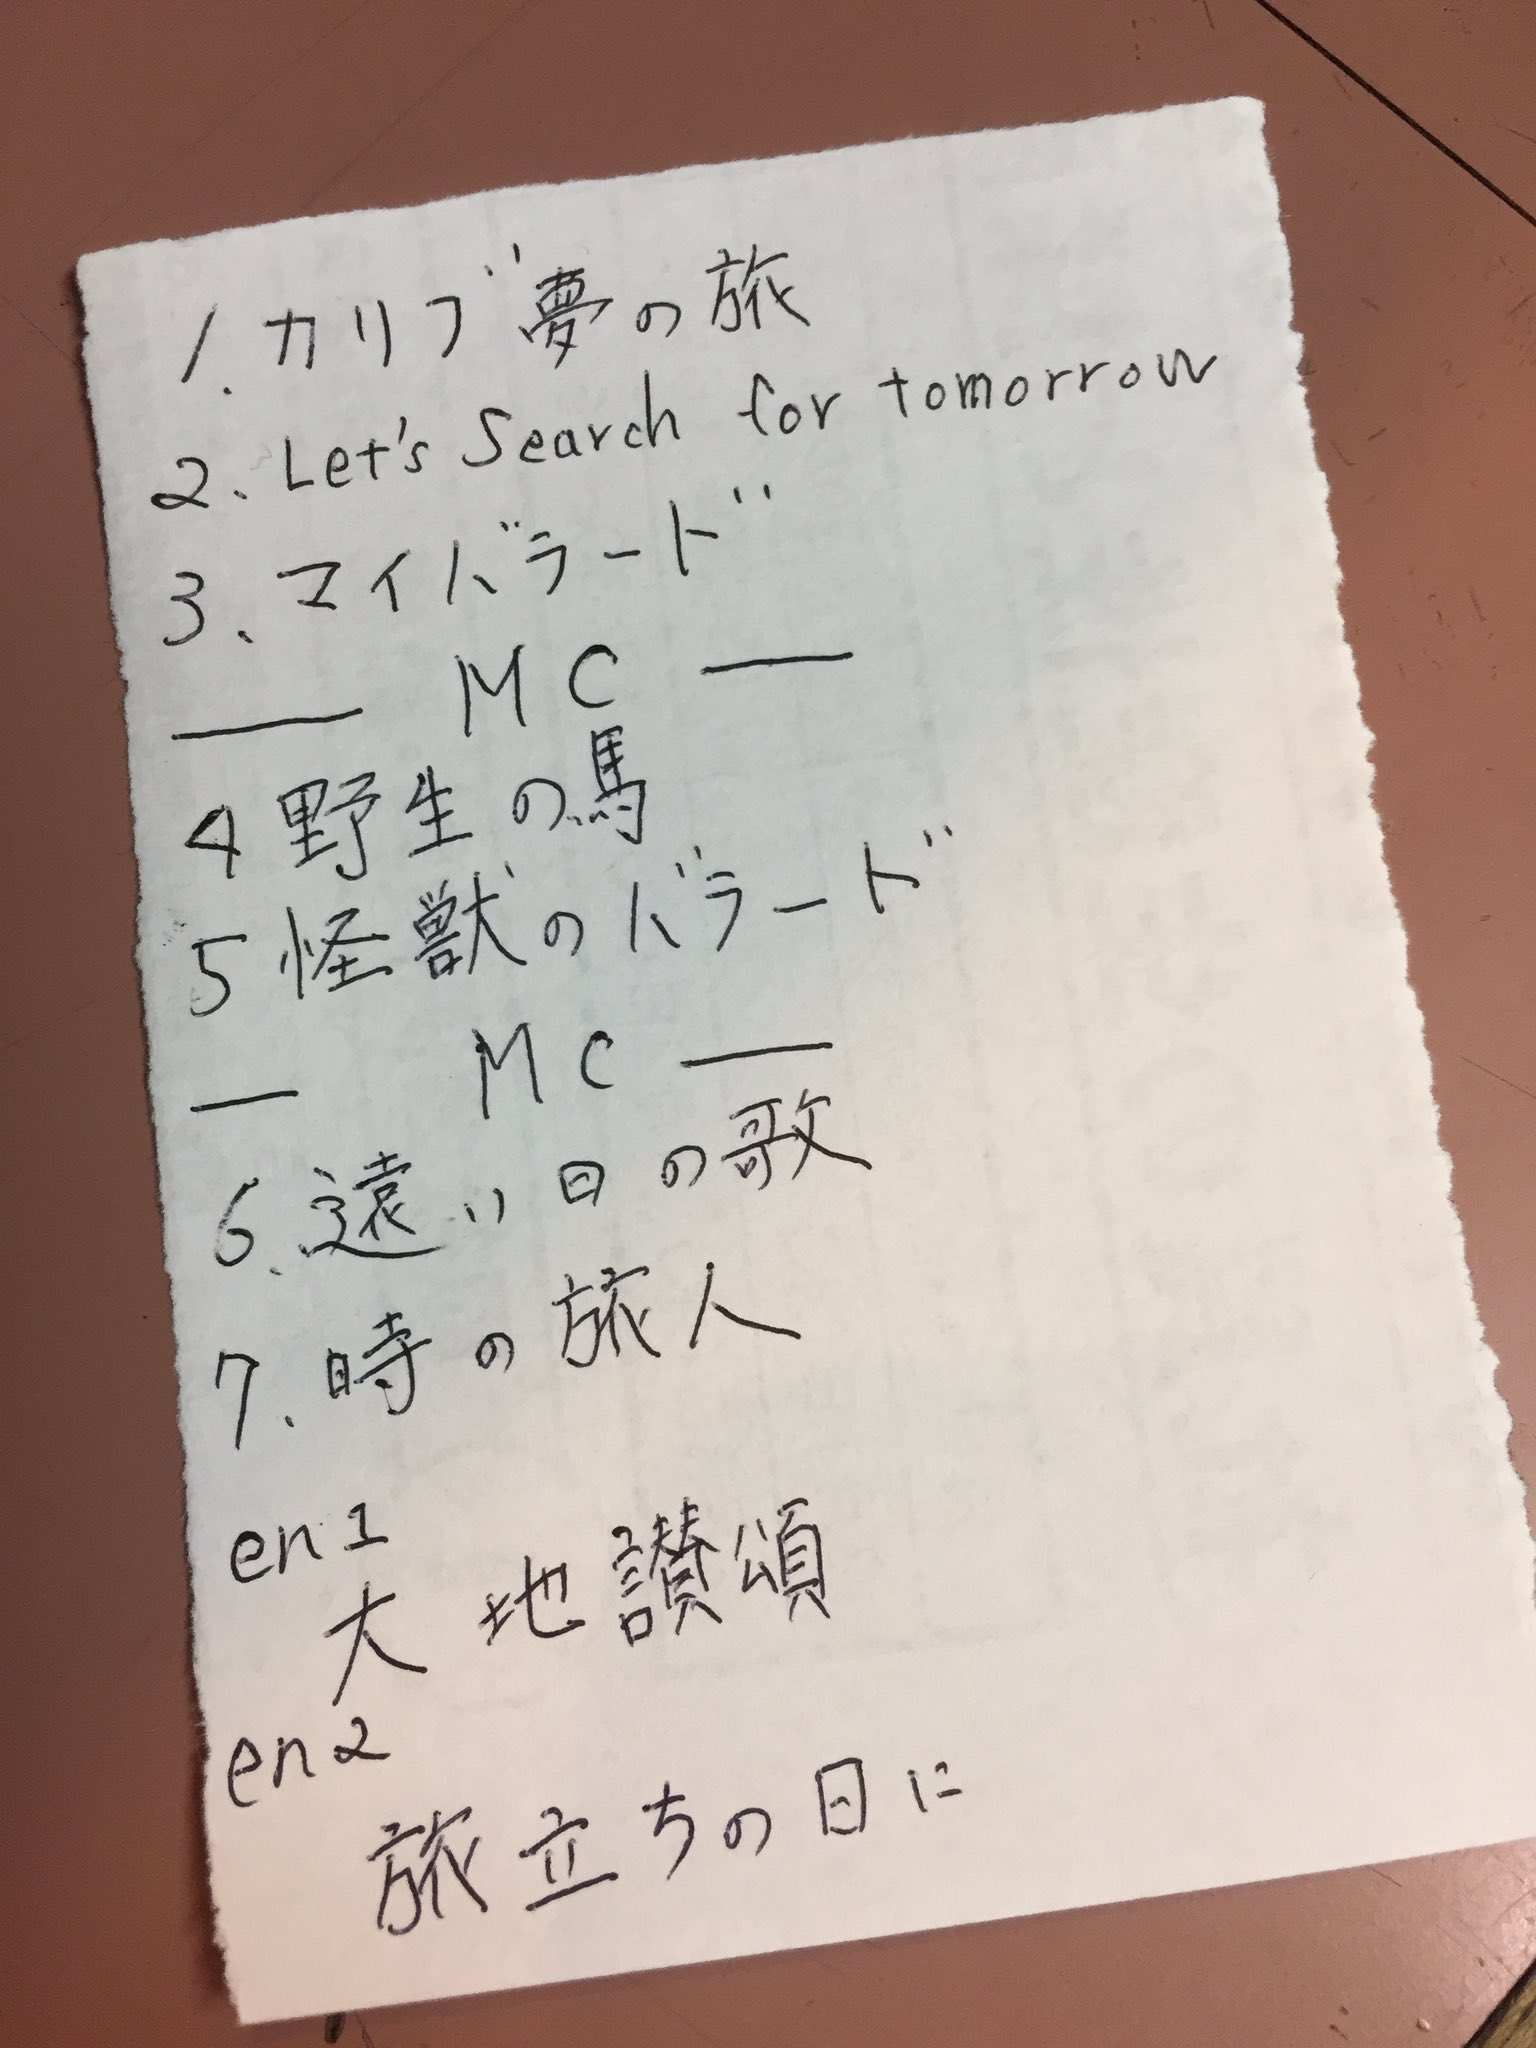 1. カリブ夢の旅
2、Let's Search for tomorrow
3、マイバラード
—— MC ——
4 野生の馬
5 怪獣のバラード
— MC ——
6、遠い日の歌
7、時の旅人
en1
大地讃頌
en2
旅立ちの日に